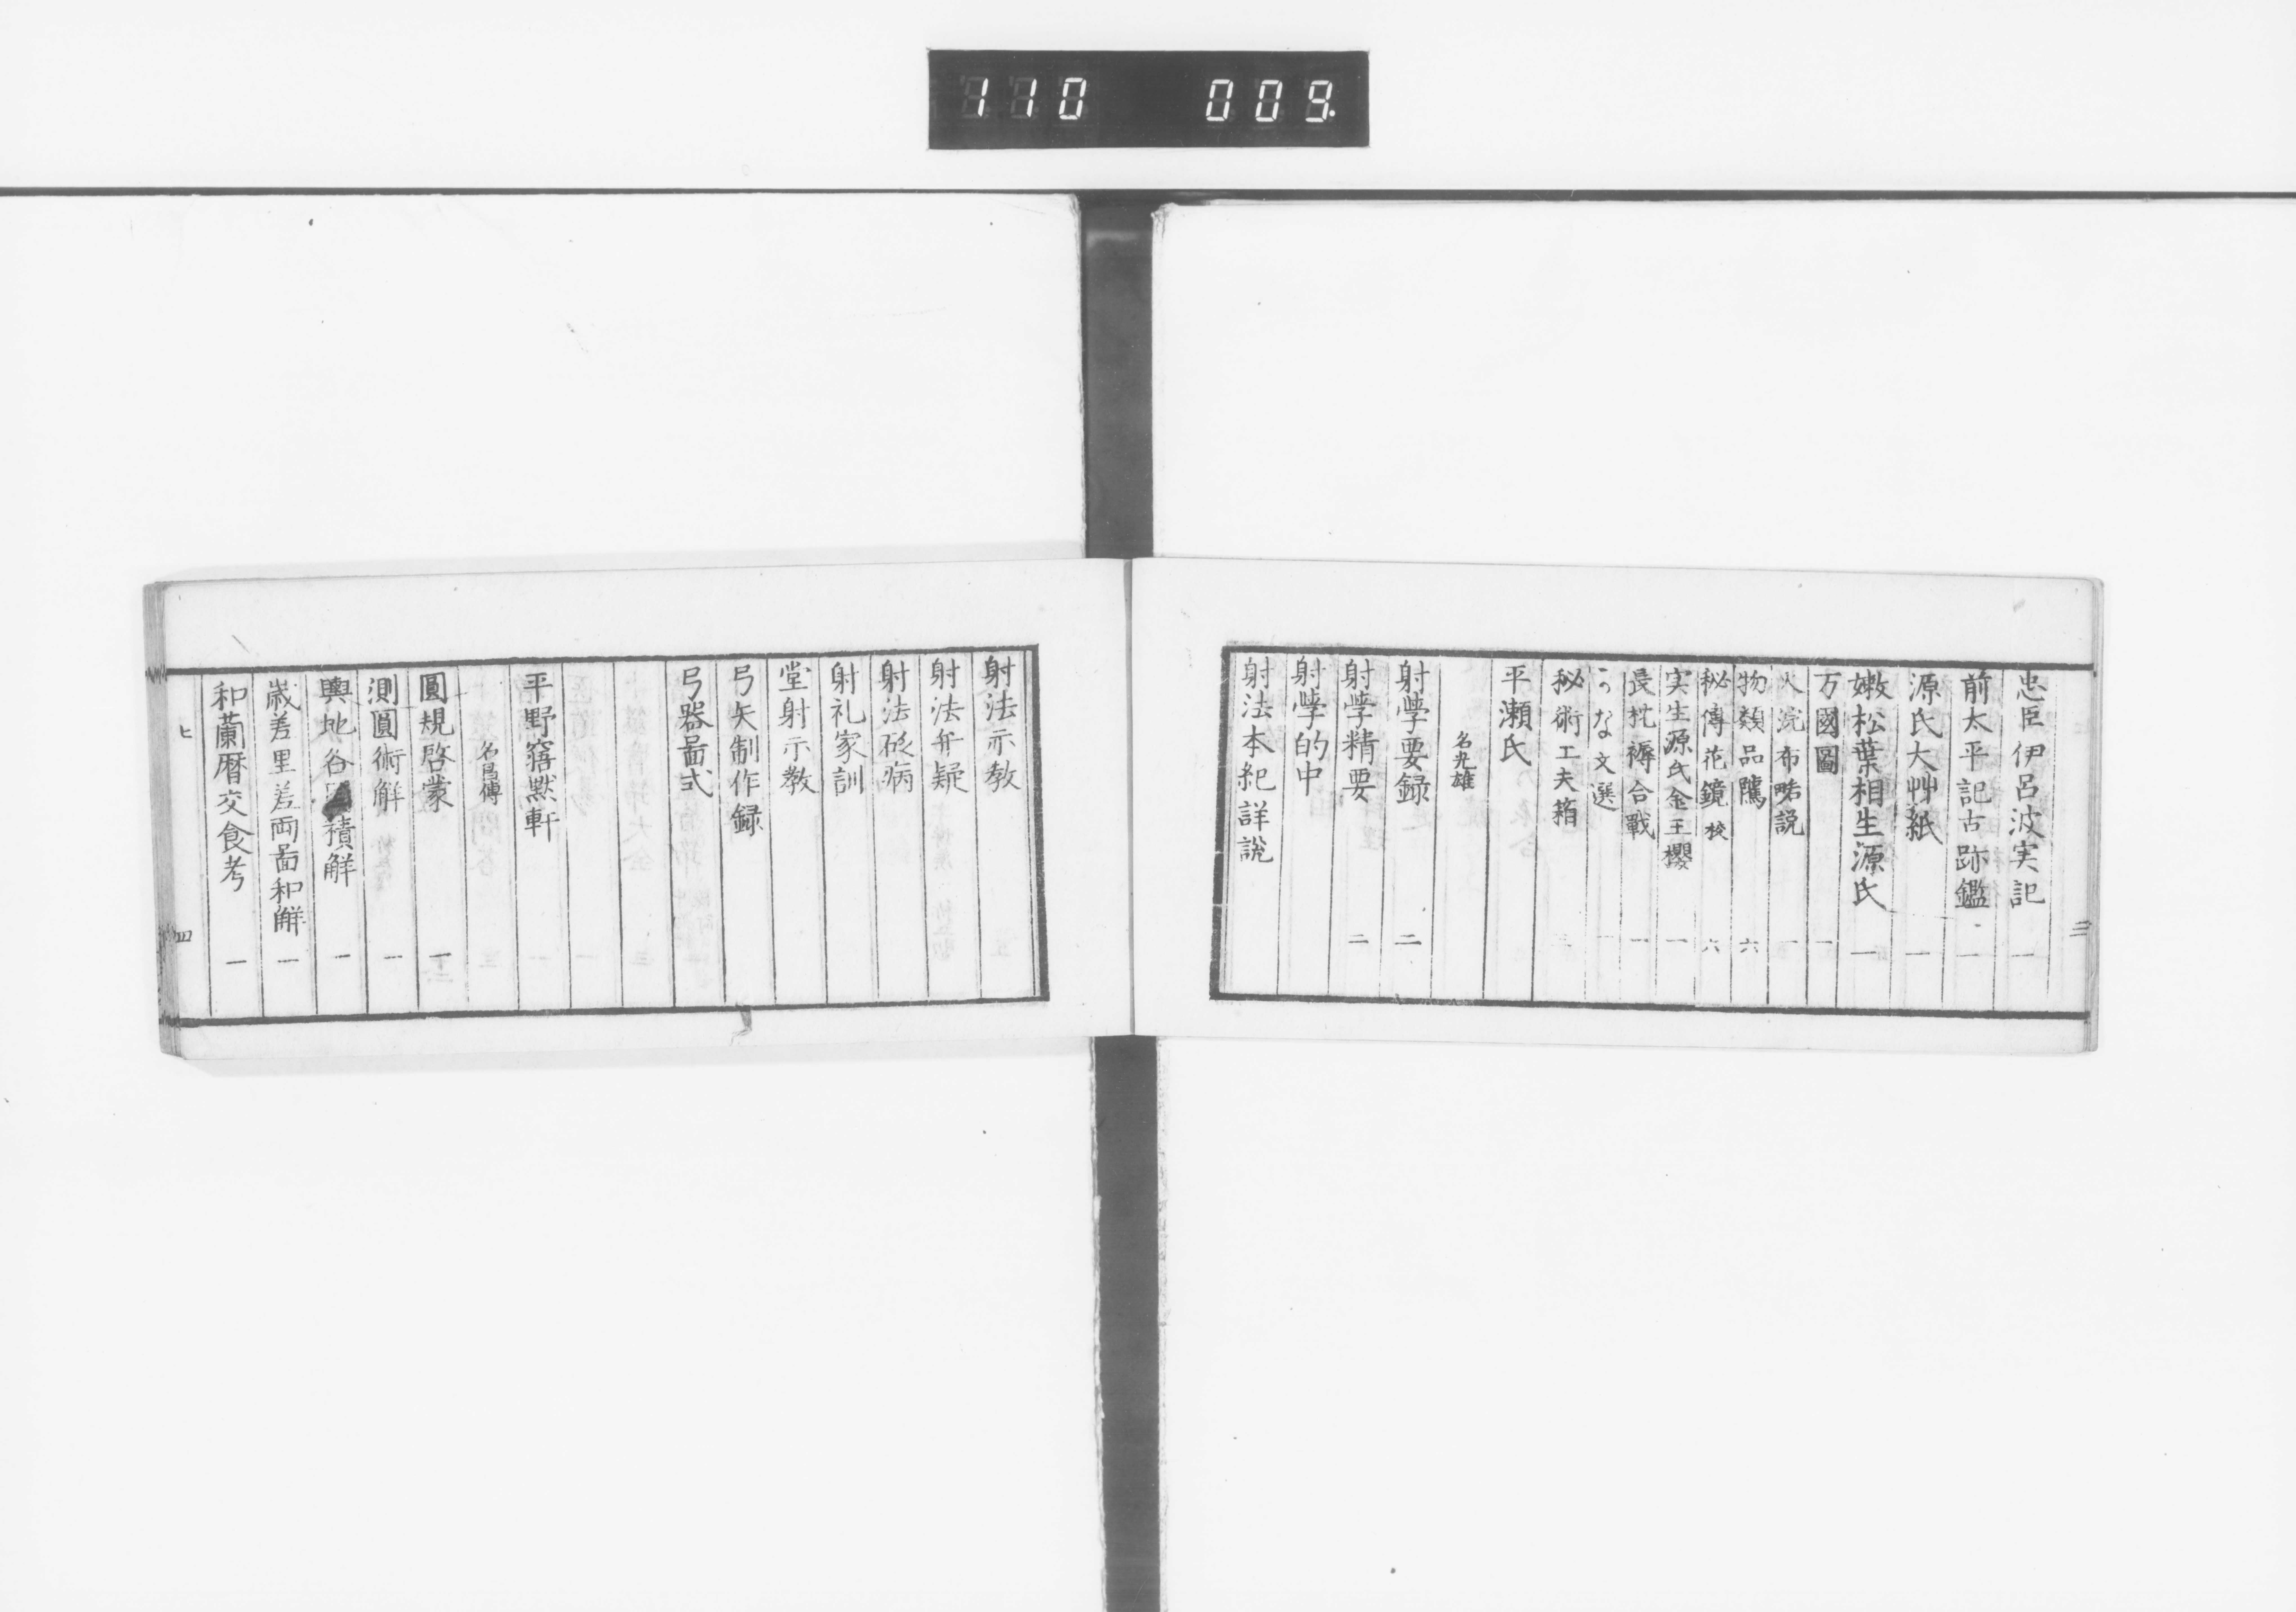 110 009.
三
忠臣伊呂波実記 一
前太平記古跡鑑 一
源氏大艸紙 一
嫩松葉相生源氏 一
万國圖 一
火浣布畧説 一
物類品隲 六
秘傳花鏡 校 六
実生源氏金王櫻 一
長枕褥合戰 一
な文選 一
秘術工夫箱
平瀬氏
名光雄
射學要録 二
射學精要 二
射學的中
射法本紀詳説
射法示教
射法弁疑
射法砭病
射礼家訓
堂射示教
弓矢制作録
弓器啚式
平野窪黙軒
名昌傳
圓規啓蒙 一
測圓術解 一
輿地各 積解 一
嵗差里差両啚和解 一
和蘭暦交食考 一
ヒ 四